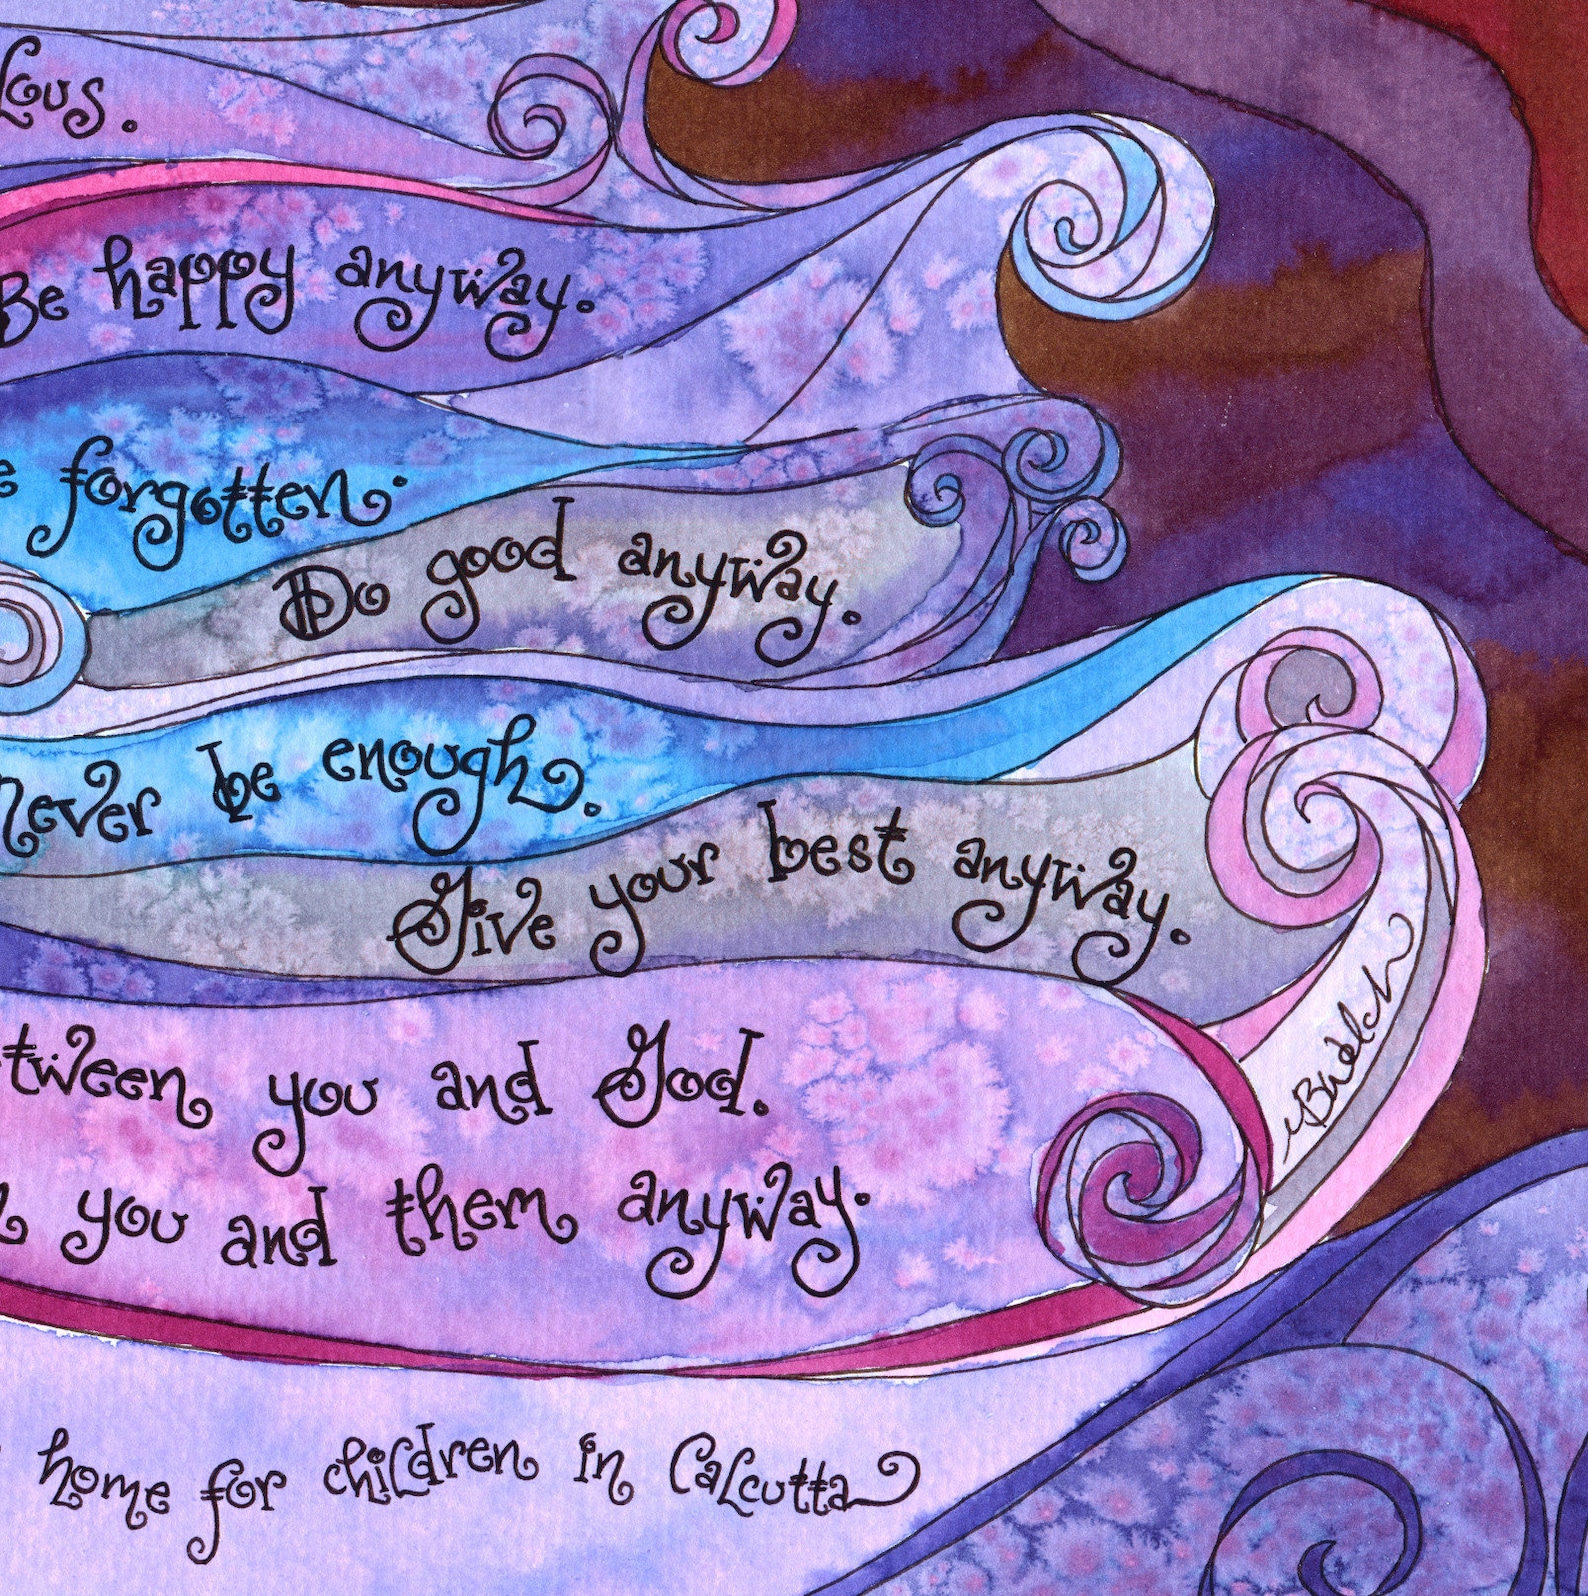 Be happy anyway.
forgotten.
Do good anyway.
never be enough.
Give your best anyway.
you and God.
you and them anyway.
home for children in Calcutta